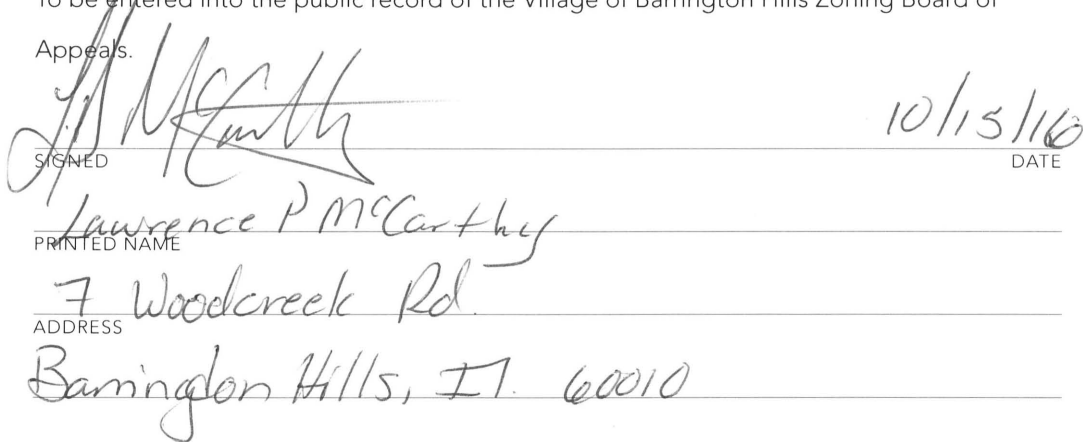 To be entered into the public record of the Village of Barrington Hills Zoning Board of
Appeals.
LP McCarthy 10/15/16
SIGNED DATE
Lawrence P McCarthy
PRINTED NAME
7 Woodcreek Rd.
ADDRESS
Barrington Hills, Il. 60010